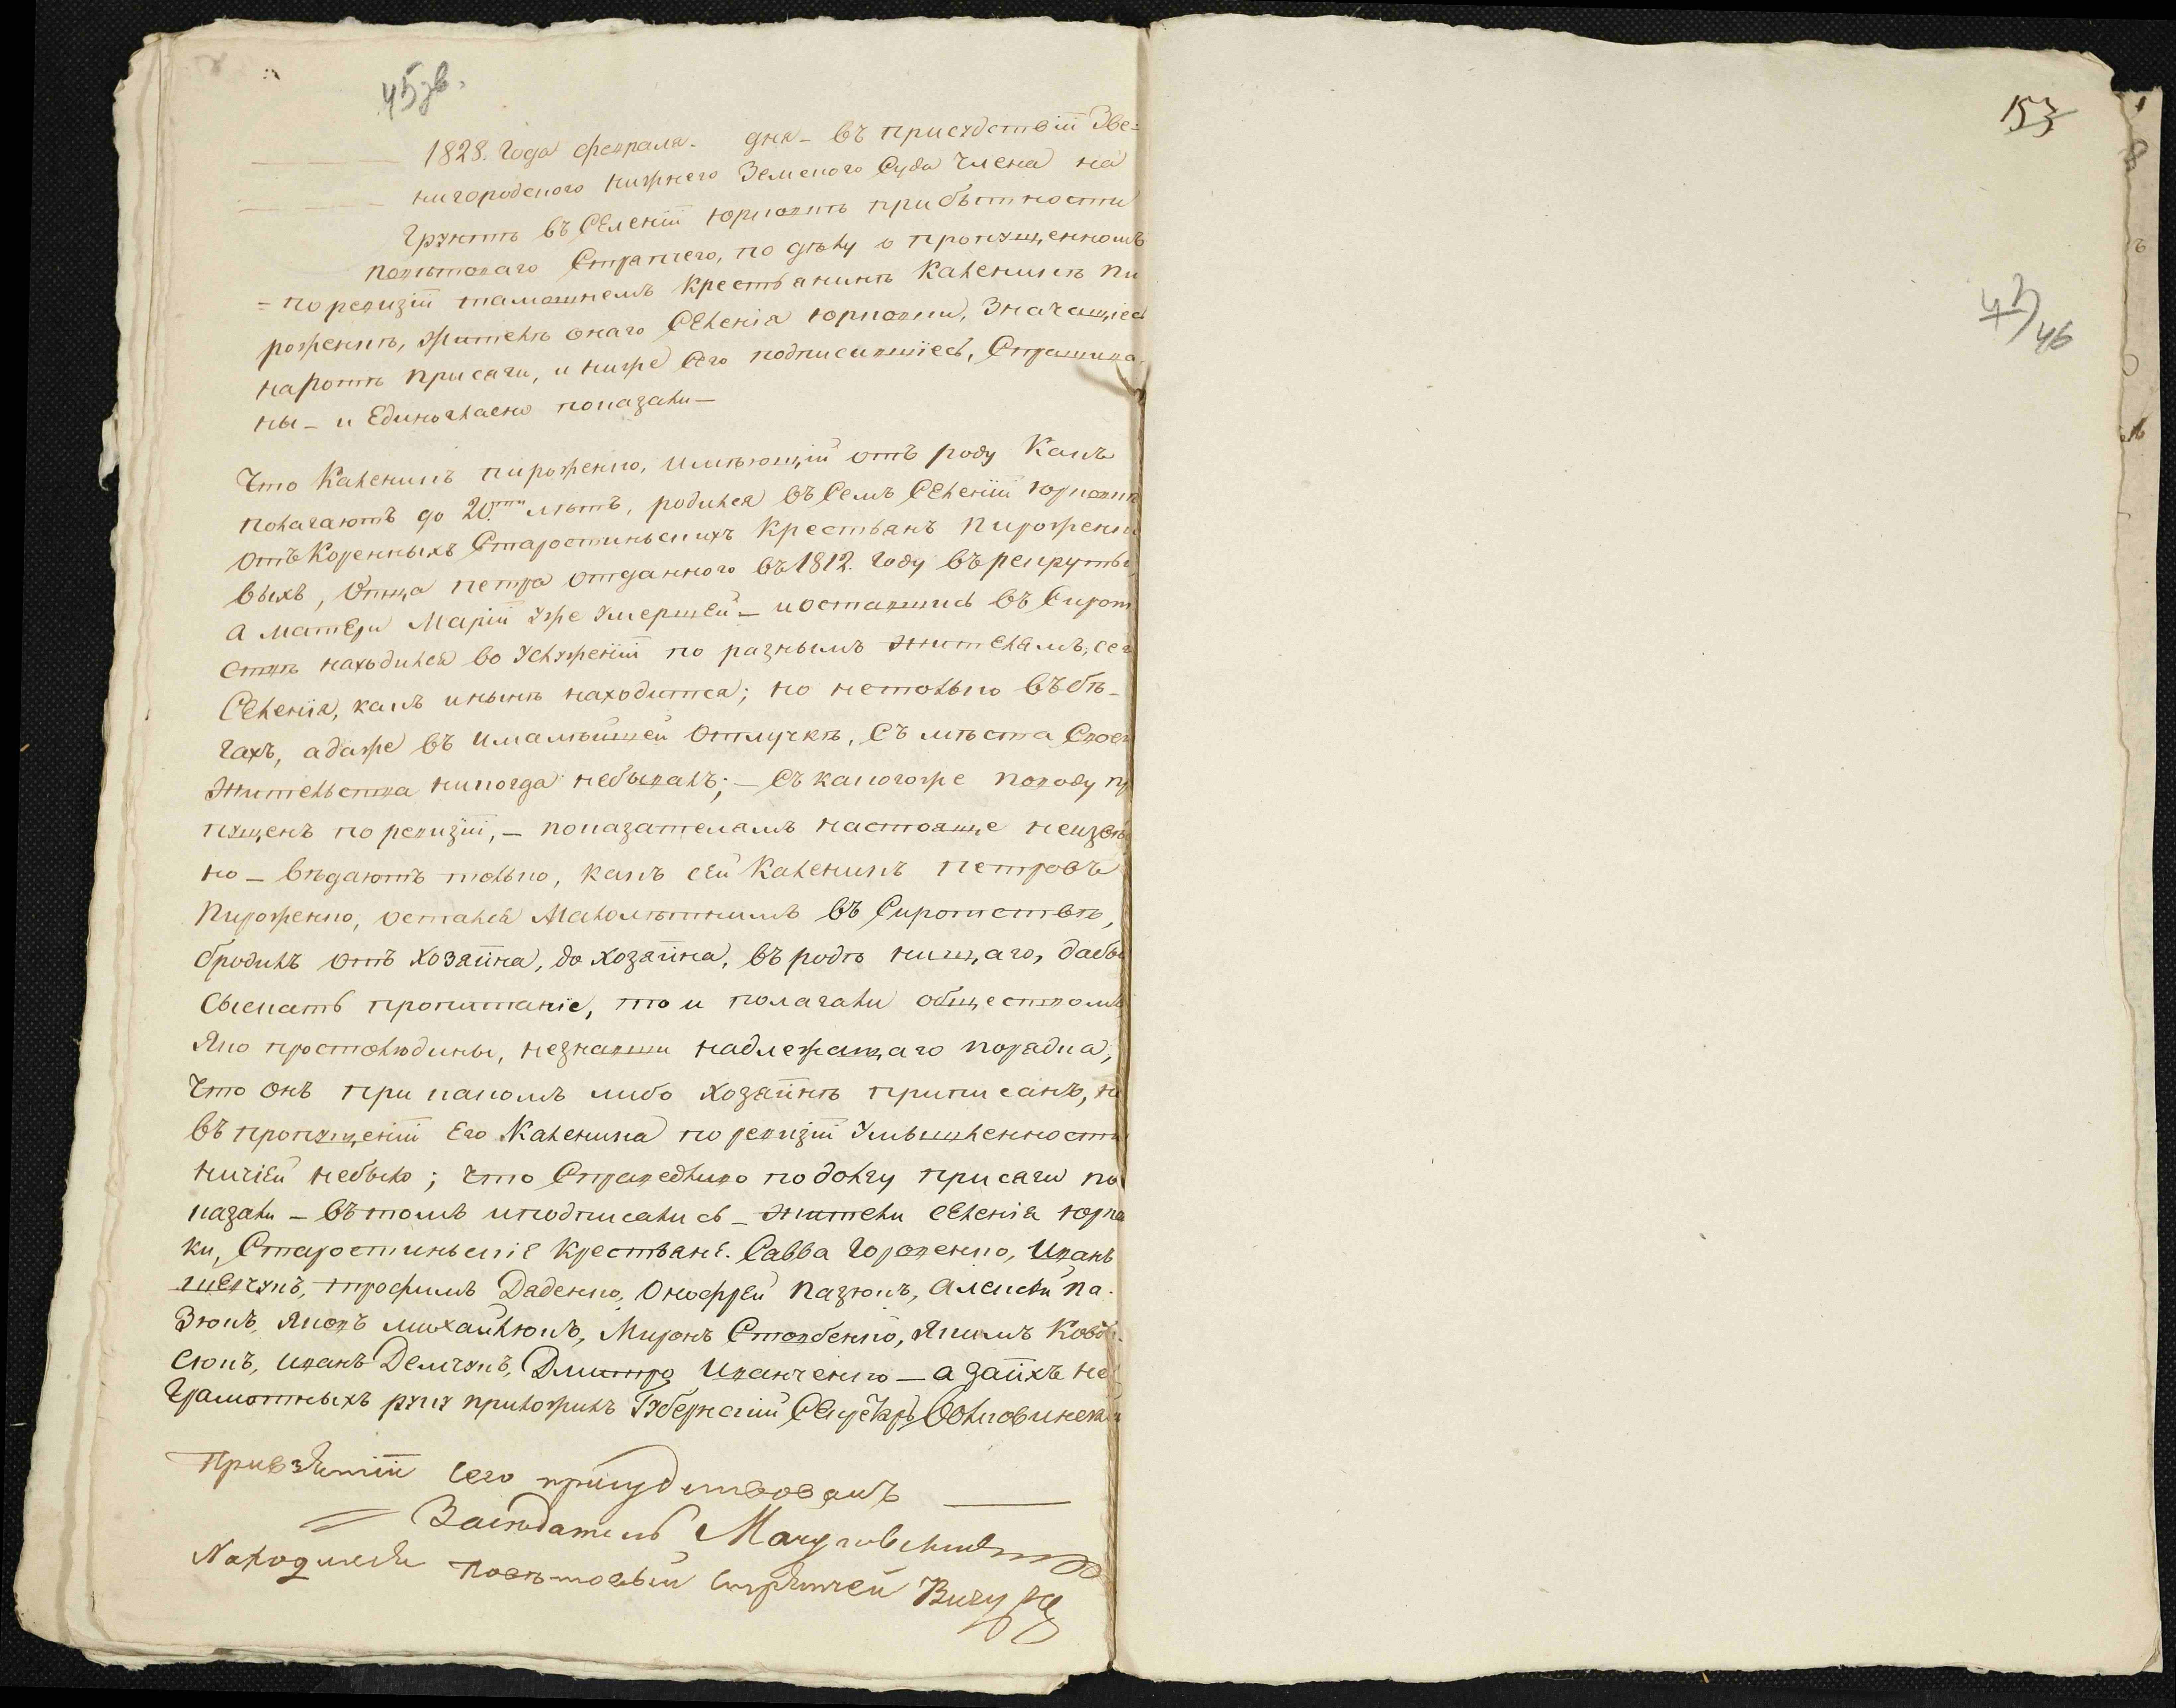 45 зв.
153
45/46
1828. Года февраля. дня – въ присудствіи Зве=
нигородского нижнего Земского Суда Члена на
Грунтѣ въ Селеніи Юрковкѣ прибытности
повѣтоваго Стряпчего, по дѣлу о пропущенномъ
= по ревизіи тамошнемъ крестянинѣ Каленикѣ Пи
роженкѣ, жители онаго Селенія Юрковки, Значащіесь
на ротѣ присяги, и ниже Сего подписавшіесь, Спрашива
ны – и Единогласно показали –
Что Каленикъ пироженко, имѣющій отъ роду Какъ
полагаютъ до 20ти лѣтъ, родился въ Семъ Селеніи Юрковкѣ
отъ Коренныхъ Старостиньскихъ Крестьянъ Пироженко
выхъ, Отца петра отданного въ 1812. Году въ рекруты,
а матери Маріи уже умершей – и оставшись въ Сирот
ствѣ находился во Услуженіи по разнымъ жителямъ, сего
Селенія, какъ и нынѣ находится; но нетолько въ бѣ–
гахъ, адаже въ ималѣйшей отлучкѣ, Съ мѣста Своего
жительства никогда небывалъ; – Съ какогоже поводу пр
пущенъ по ревизіи, – показателямъ настояще неизвѣс
но – вѣдаютъ только, какъ сей Каленикъ петровъ
Пироженко, остался Малолѣтнимъ въ Сиротствѣ,
бродилъ отъ хозяина, до хозяина, въ родѣ нищаго, дабы
Сыскать пропитаніе, то и полагали обществомъ
Яко простолюдины, незнавши надлежащаго порядка,
Что онъ при какомъ либо хозяинѣ приписанъ, но
въ пропущеніи Его Каленика по ревизіи Умышленности
ничіей небыло; Что Справедливо по долгу присяги по
казали – въ томъ иподписались – жители Селенія Юрков
ки, Старостиньскіе крестьяне. Савва Горовенко, Иванъ
шевчукъ, трофимъ Даденко, Онофрей Пазюкъ, Алексѣй Па.
Зюкъ, Яковъ михайлюкъ, Миронъ Столбенко, Якимъ Ковал
сюкъ, Иванъ Демчукъ, Дмитро Иванченко – а заихъ не
Грамотныхъ руку приложилъ Губернскій Секретарь
Привзятіи сего присудствовалъ
Засѣдатель
Находился повѣтовый стряпчей